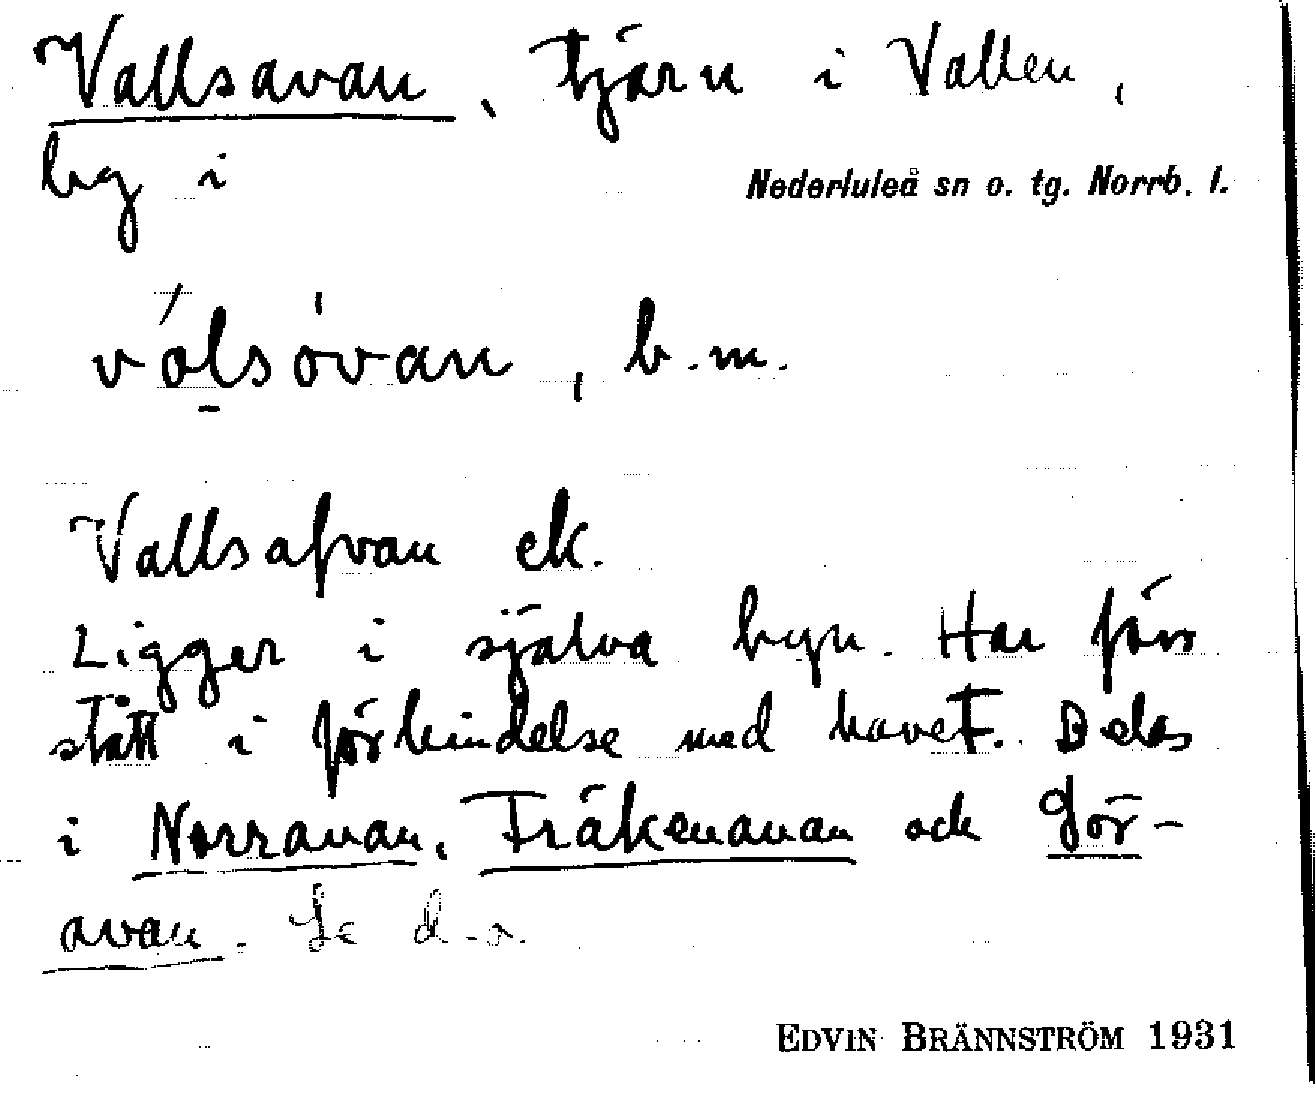 Vallsavan, tjärn i Vallen,
by i Nederluleå sn o. tg. Norrb. l.
vȯlsȯvan, b.m.
Vallsafvan ek.
Ligger i själva byn. Har förr
stått i förbindelse med havet. Delas
i Norravan, Fräkenavan och Gör-
avan. Se d.o.
EDVIN BRÄNNSTRÖM 1931